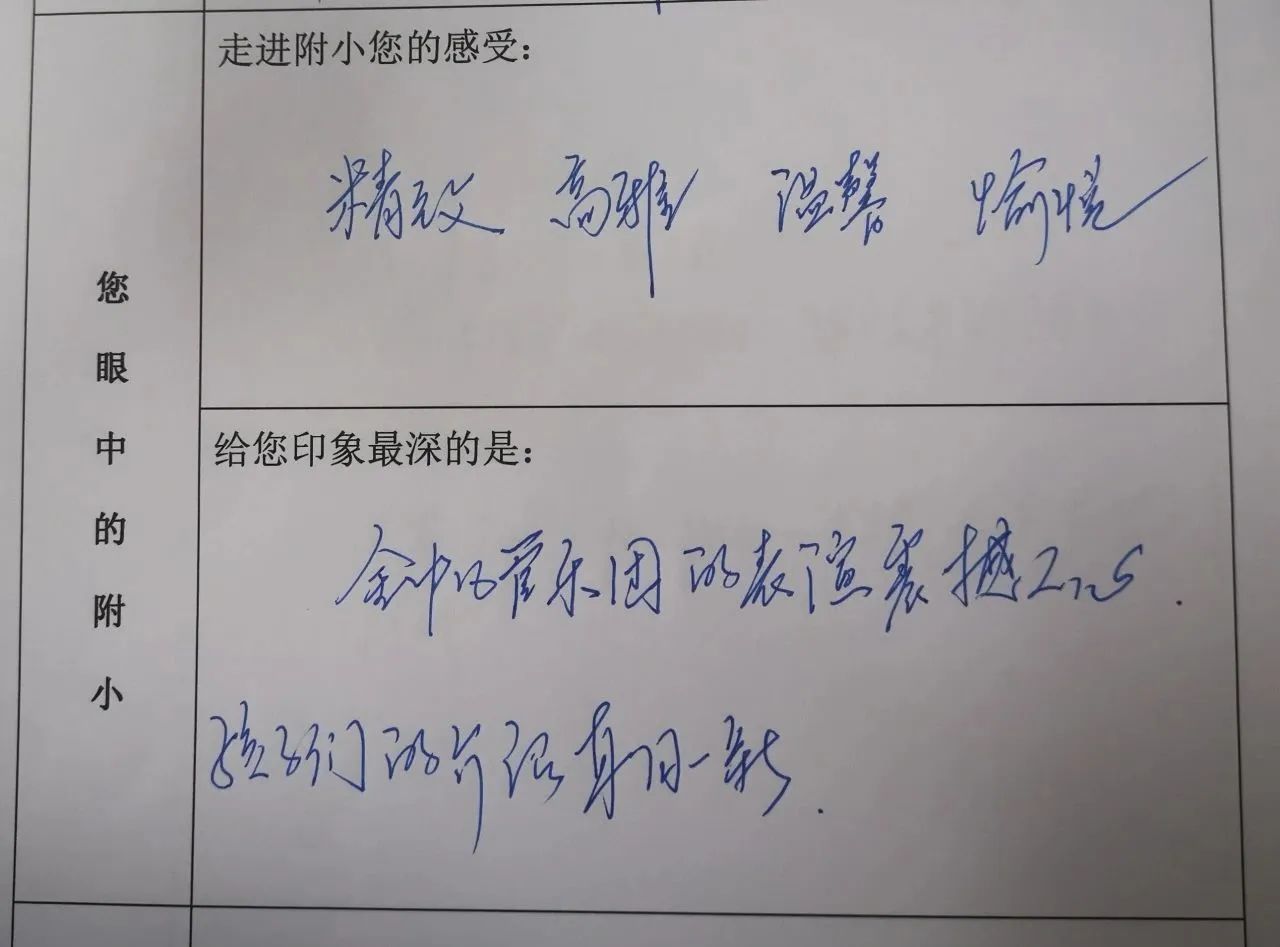 走进附小您的感受：
精致 高雅 温馨 愉悦
您眼中的附小
给您印象最深的是：
金钟管乐团的表演震撼人心.
孩子们的介绍耳目一新.